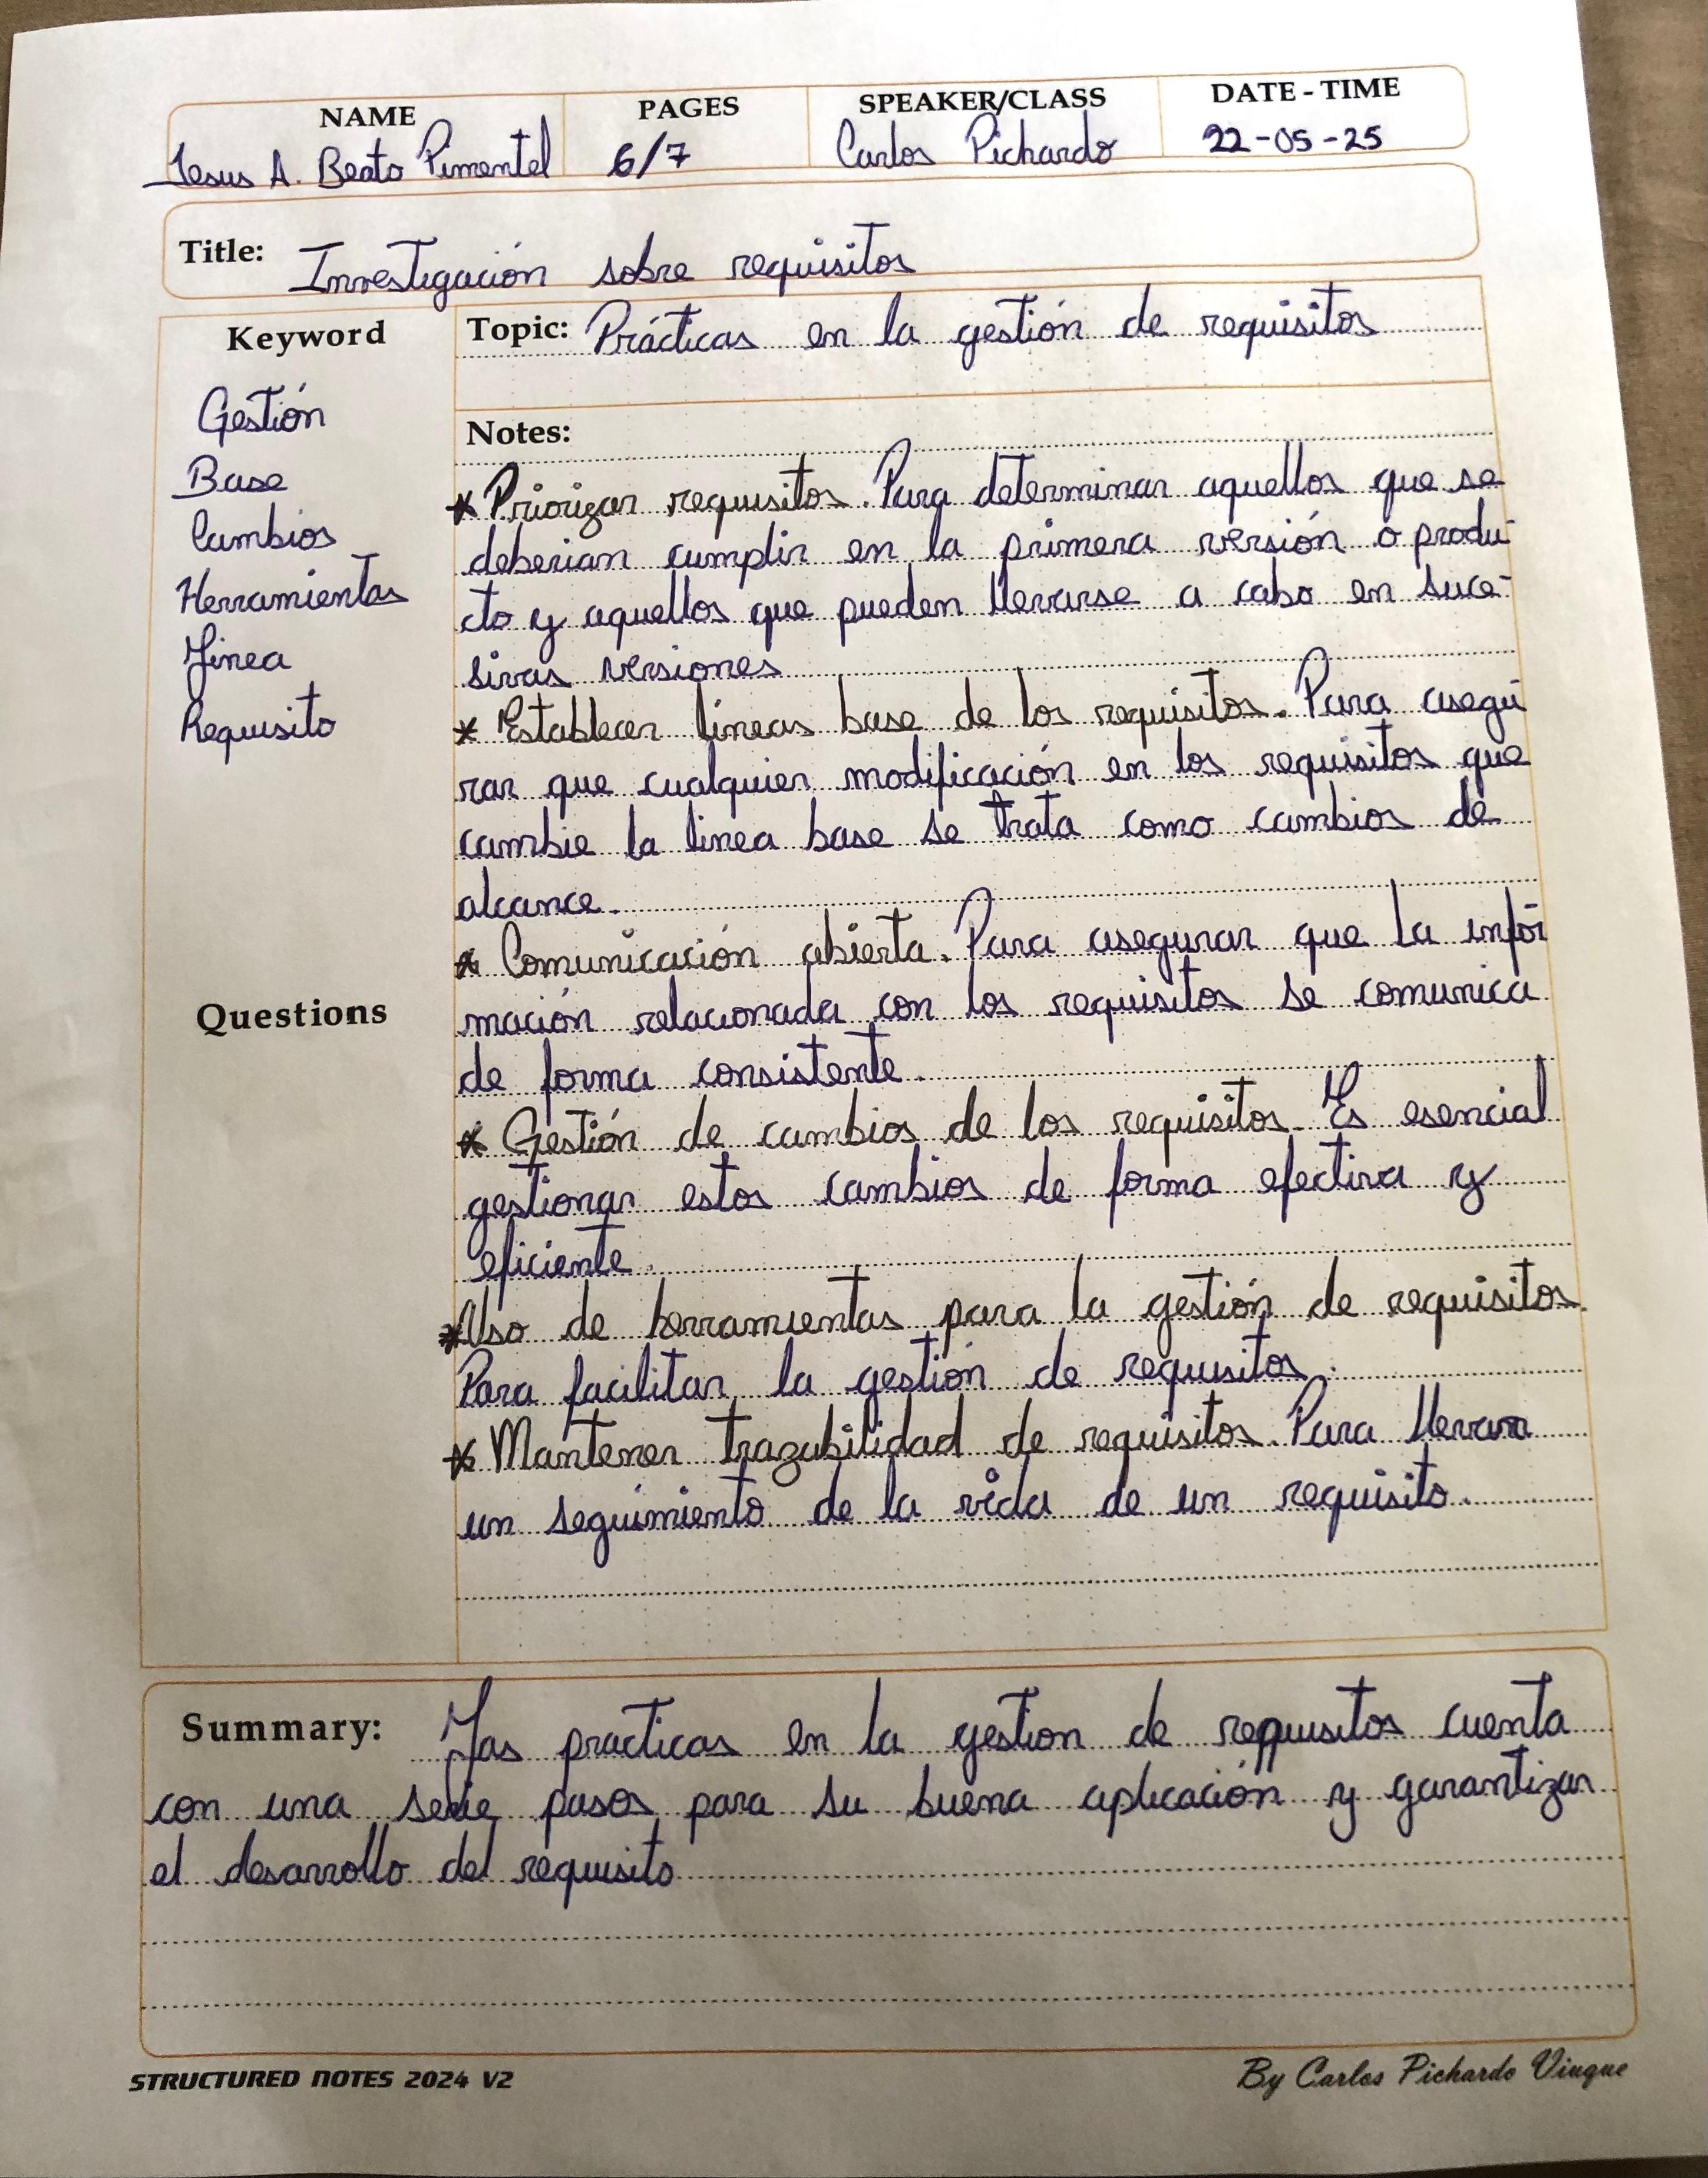 NAME PAGES SPEAKER/CLASS DATE - TIME
Jesus A. Beato Pimentel 6/7 Carlos Pichardo 22-05-25
Title: Investigación sobre requisitos
Keyword
Gestión
Base
Cambios
Herramientas
Linea
Requisito
Questions
Topic: Prácticas en la gestión de requisitos
Notes:
* Priorizar requisitos. Para determinar aquellos que se
deberian cumplir en la primera versión o produ-
cto y aquellos que pueden llevarse a cabo en suce-
sivas versiones
* Establecer líneas base de los requisitos. Para asegu-
rar que cualquier modificación en los requisitos que
cambie la linea base se trata como cambios de
alcance.
* Comunicación abierta. Para asegurar que la infor-
mación relacionada con los requisitos se comunica
de forma consistente.
* Gestión de cambios de los requisitos. Es esencial
gestionar estos cambios de forma efectiva y
eficiente.
* Uso de herramientas para la gestión de requisitos.
Para facilitar la gestión de requisitos.
* Mantener trazabilidad de requisitos. Para llevar
un seguimiento de la vida de un requisito.
Summary: Las practicas en la gestion de requisitos cuenta
con una serie pasos para su buena aplicación y garantizar
el desarrollo del requisito
STRUCTURED NOTES 2024 V2 By Carlos Pichardo Viuque